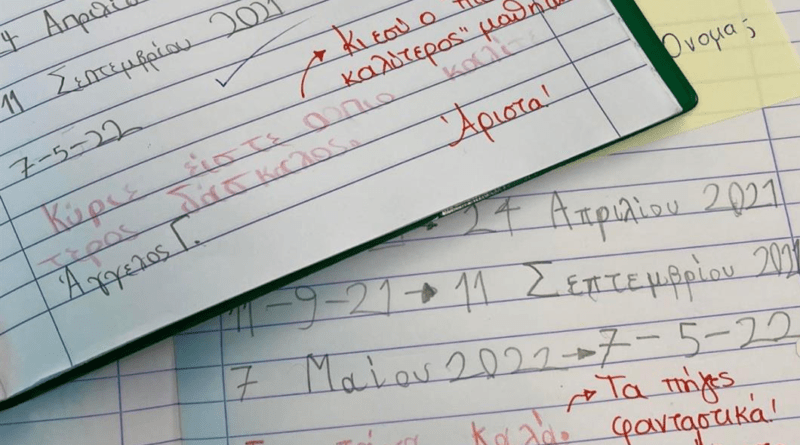 Απριλίου
11 Σεπτεμβρίου 2021
7-5-22
Κι εσύ ο
καλύτερος"
Κύριε είστε
τερος δάσκαλος.
Άριστα!
Άγγελος Γ.
Όνομα;
24 Απριλίου 2021
11-9-21→11 Σεπτεμβρίου
7 Μαΐου 2022→7-5-22
Τα πήγες
φανταστικά!
καλά.